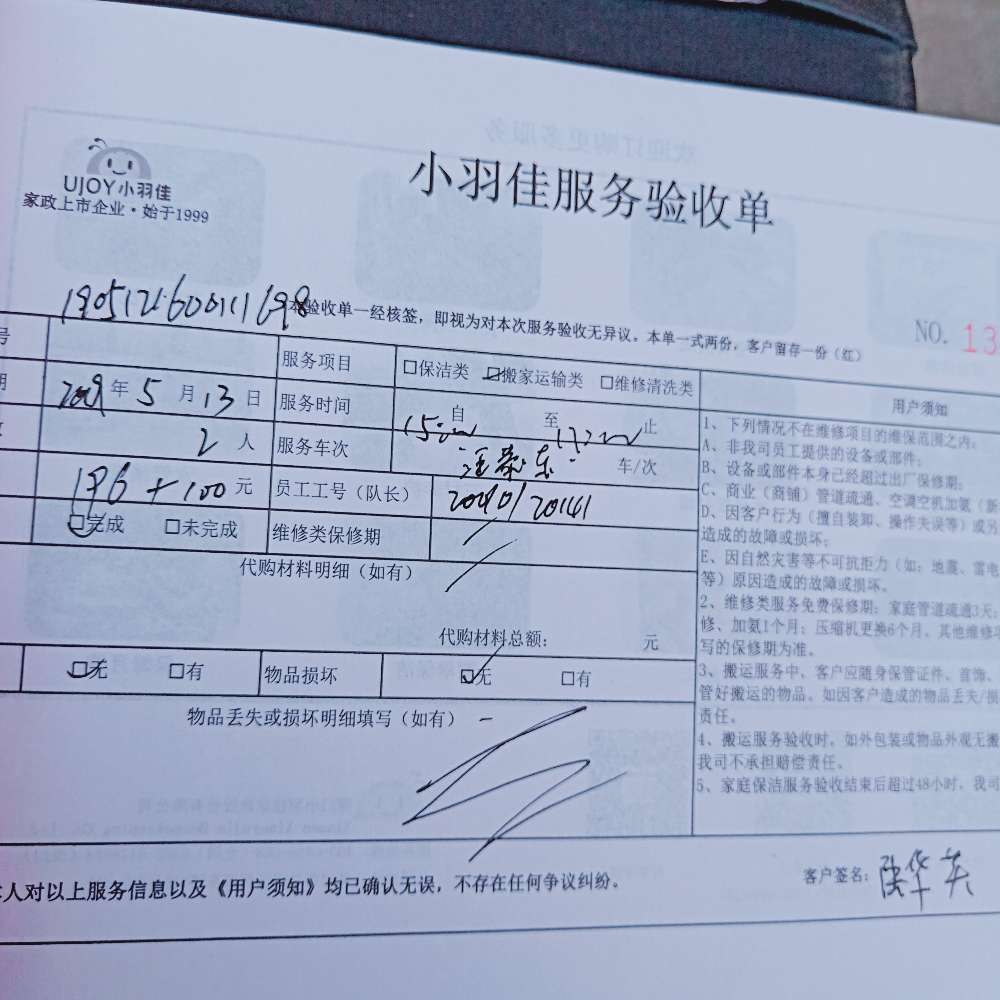 UJOY小羽佳
家政上市企业·始于1999
小羽佳服务验收单
1905121600111698
本验收单一经核签，即视为对本次服务验收无异议。本单一式两份，客户留存一份（红）
NO. 13
号
服务项目 口保洁类 口搬家运输类 口维修清洗类
用户须知
期 2019年5月13日 服务时间 自15:00至17:20止
2人 服务车次 车/次
196+100元 员工工号（队长） 201401
口完成 口未完成 维修类保修期
代购材料明细（如有）
代购材料总额： 元
口无 口有 物品损坏 口无 口有
物品丢失或损坏明细填写（如有）
1、下列情况不在维修项目的维保范围之内：
A、非我司员工提供的设备或部件；
B、设备或部件本身已经超过出厂保修期；
C、商业（商铺）管道疏通、空调空机加氨（新
D、因客户行为（擅自装卸、操作失误等）或分
造成的故障或损坏；
E、因自然灾害等不可抗拒力（如：地震、雷电
等）原因造成的故障或损坏。
2、维修类服务免费保修期：家庭管道疏通3天；
修、加氨1个月；压缩机更换6个月。其他维修项
写的保修期为准。
3、搬运服务中，客户应随身保管证件、首饰、
管好搬运的物品。如因客户造成的物品丢失/损
责任。
4、搬运服务验收时，如外包装或物品外观无搬
我司不承担赔偿责任。
5、家庭保洁服务验收结束后超过48小时，我司
本人对以上服务信息以及《用户须知》均已确认无误，不存在任何争议纠纷。
客户签名：陆华英